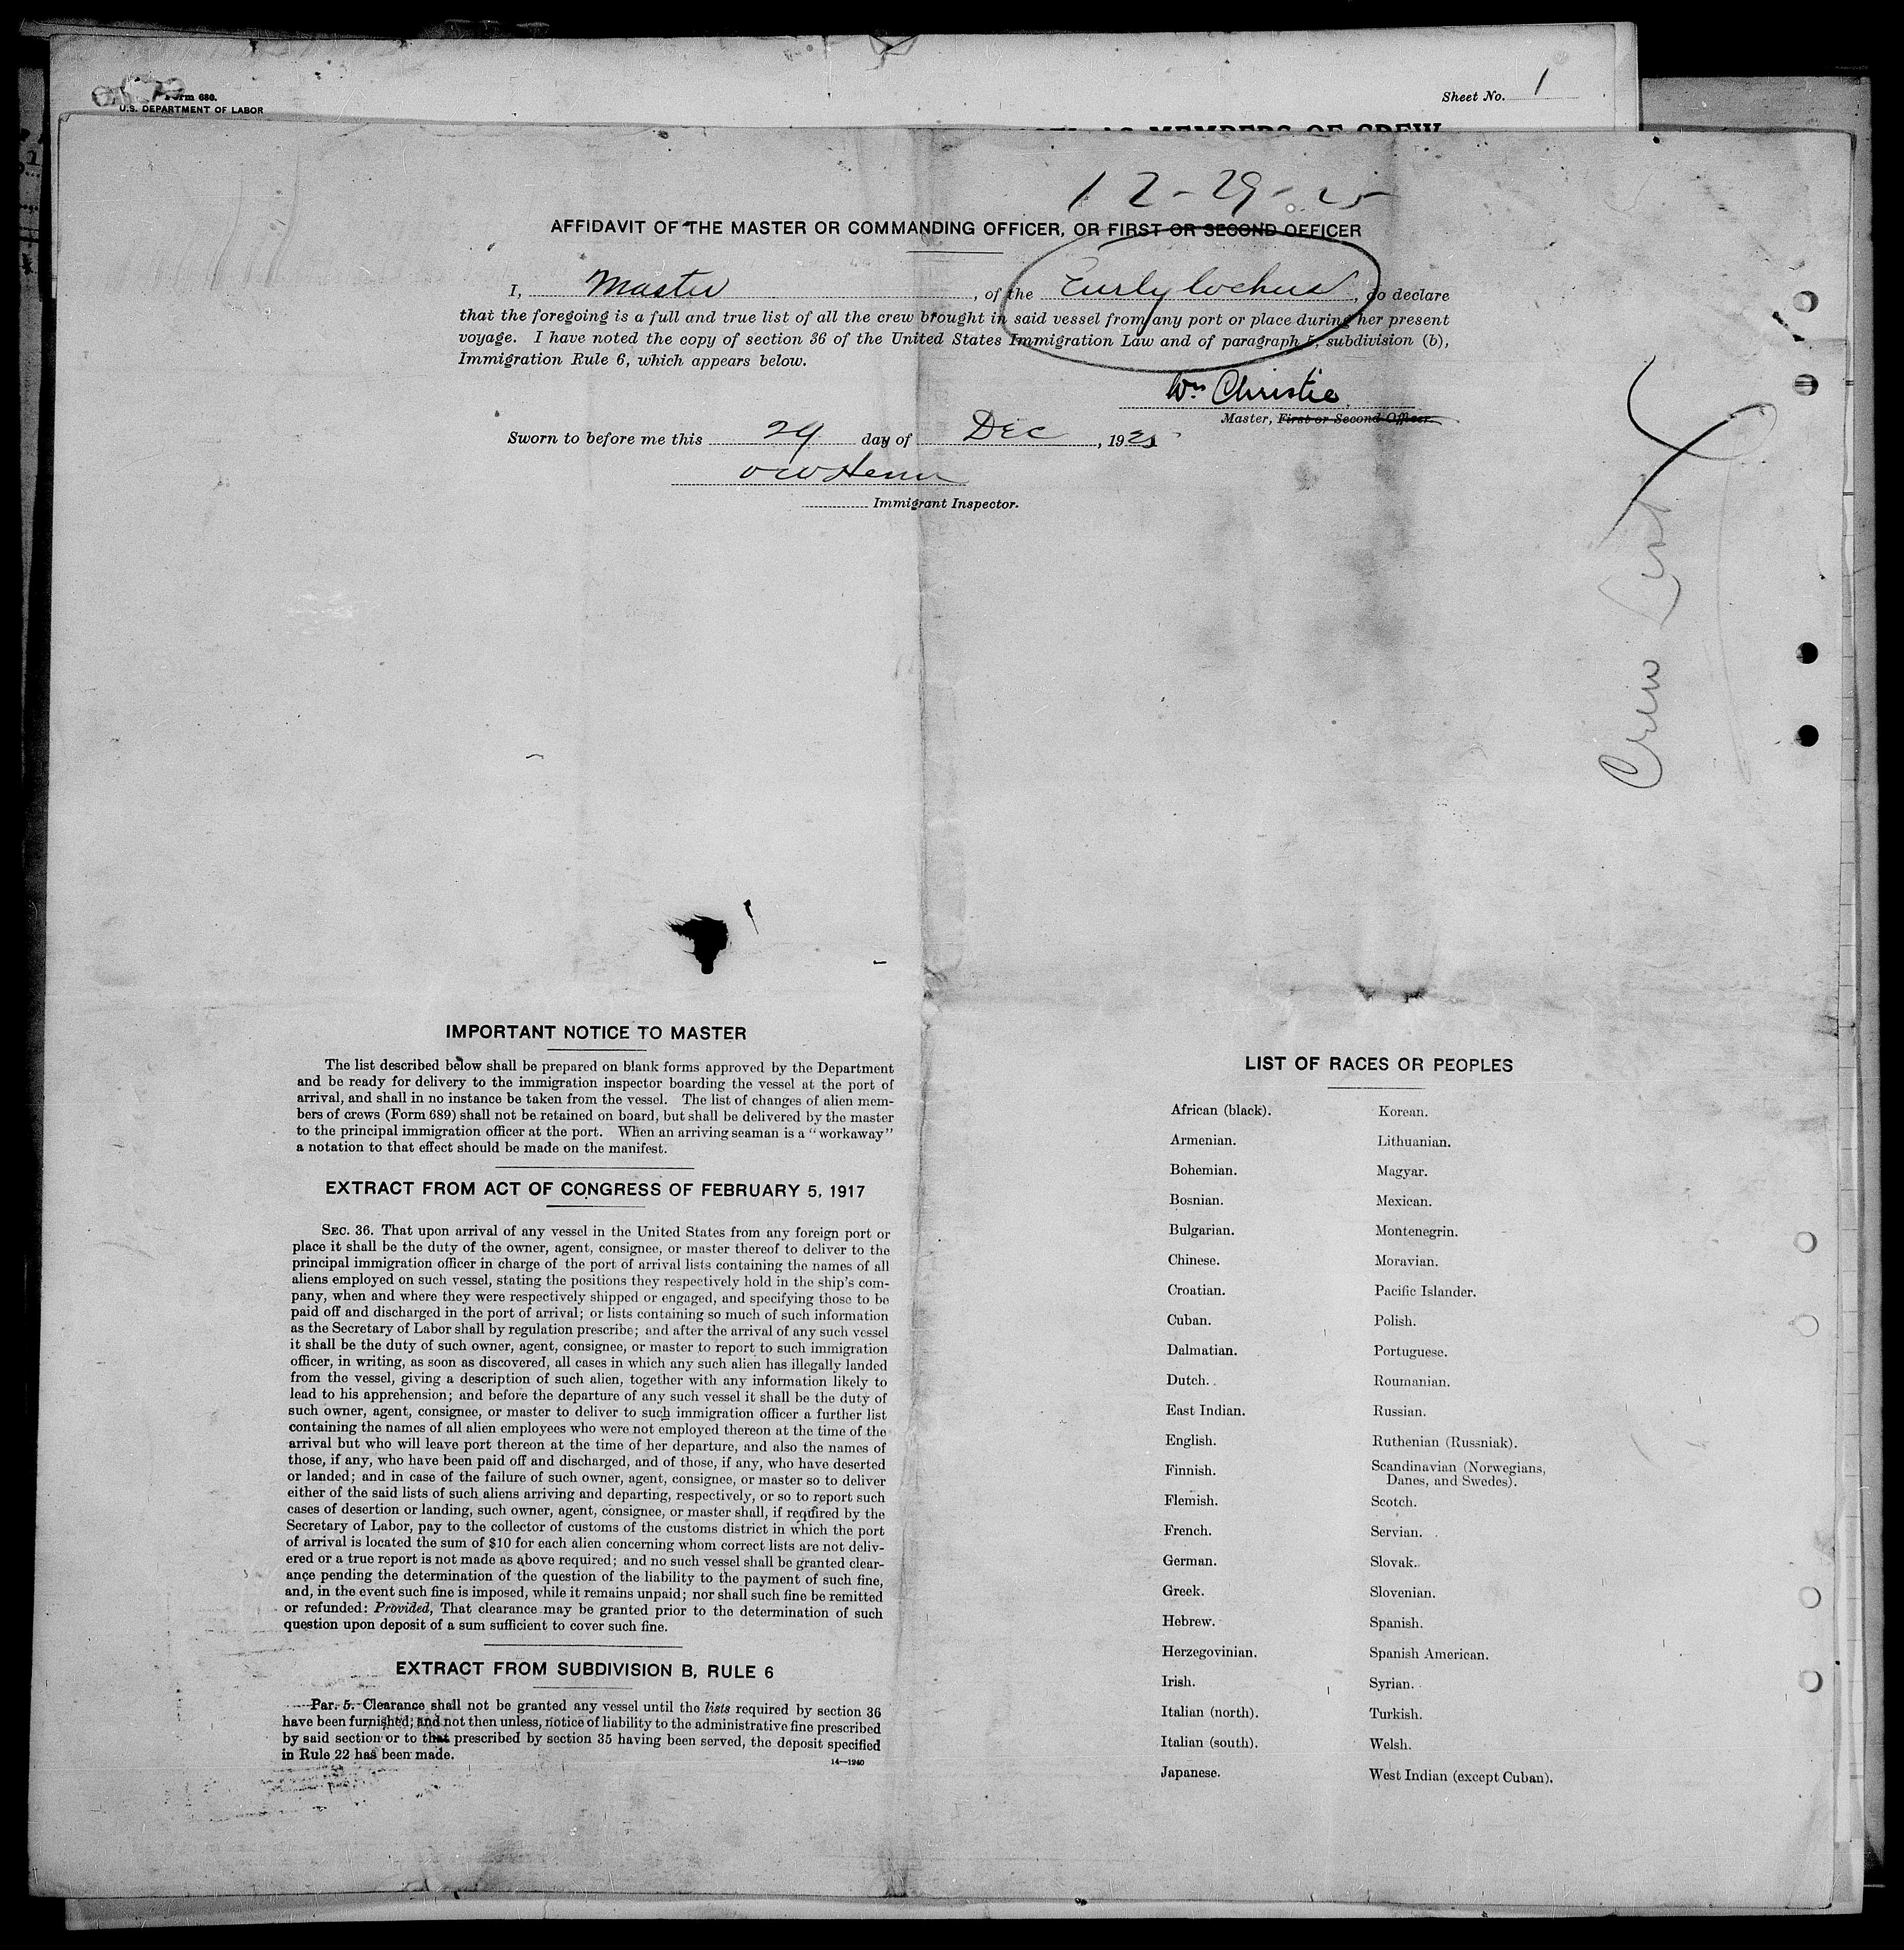 Form 680.
U.S. DEPARTMENT OF LABOR
Sheet No. 1
AS MEMBERS OF CREW
12-29-25
AFFIDAVIT OF THE MASTER OR COMMANDING OFFICER, OR FIRST OR SECOND OFFICER
I, Master, of the Eurylochus, do declare
that the foregoing is a full and true list of all the crew brought in said vessel from any port or place during her present
voyage. I have noted the copy of section 36 of the United States Immigration Law and of paragraph 5, subdivision (b),
Immigration Rule 6, which appears below.
Wm Christie
Master, First or Second Officer.
Sworn to before me this 29 day of Dec, 1925
Immigrant Inspector.
Crew List
IMPORTANT NOTICE TO MASTER
The list described below shall be prepared on blank forms approved by the Department
and be ready for delivery to the immigration inspector boarding the vessel at the port of
arrival, and shall in no instance be taken from the vessel. The list of changes of alien mem-
bers of crews (Form 689) shall not be retained on board, but shall be delivered by the master
to the principal immigration officer at the port. When an arriving seaman is a "workaway"
a notation to that effect should be made on the manifest.
EXTRACT FROM ACT OF CONGRESS OF FEBRUARY 5, 1917
SEC. 36. That upon arrival of any vessel in the United States from any foreign port or
place it shall be the duty of the owner, agent, consignee, or master thereof to deliver to the
principal immigration officer in charge of the port of arrival lists containing the names of all
aliens employed on such vessel, stating the positions they respectively hold in the ship's com-
pany, when and where they were respectively shipped or engaged, and specifying those to be
paid off and discharged in the port of arrival; or lists containing so much of such information
as the Secretary of Labor shall by regulation prescribe; and after the arrival of any such vessel
it shall be the duty of such owner, agent, consignee, or master to report to such immigration
officer, in writing, as soon as discovered, all cases in which any such alien has illegally landed
from the vessel, giving a description of such alien, together with any information likely to
lead to his apprehension; and before the departure of any such vessel it shall be the duty of
such owner, agent, consignee, or master to deliver to such immigration officer a further list
containing the names of all alien employees who were not employed thereon at the time of the
arrival but who will leave port thereon at the time of her departure, and also the names of
those, if any, who have been paid off and discharged, and of those, if any, who have deserted
or landed; and in case of the failure of such owner, agent, consignee, or master so to deliver
either of the said lists of such aliens arriving and departing, respectively, or so to report such
cases of desertion or landing, such owner, agent, consignee, or master shall, if required by the
Secretary of Labor, pay to the collector of customs of the customs district in which the port
of arrival is located the sum of $10 for each alien concerning whom correct lists are not deliv-
ered or a true report is not made as above required; and no such vessel shall be granted clear-
ance pending the determination of the question of the liability to the payment of such fine,
and, in the event such fine is imposed, while it remains unpaid; nor shall such fine be remitted
or refunded: Provided, That clearance may be granted prior to the determination of such
question upon deposit of a sum sufficient to cover such fine.
EXTRACT FROM SUBDIVISION B, RULE 6
Par. 5. Clearance shall not be granted any vessel until the lists required by section 36
have been furnished; and not then unless, notice of liability to the administrative fine prescribed
by said section or to that prescribed by section 35 having been served, the deposit specified
in Rule 22 has been made.
14—1240
LIST OF RACES OR PEOPLES
African (black).
Armenian.
Bohemian.
Bosnian.
Bulgarian.
Chinese.
Croatian.
Cuban.
Dalmatian.
Dutch.
East Indian.
English.
Finnish.
Flemish.
French.
German.
Greek.
Hebrew.
Herzegovinian.
Irish.
Italian (north).
Italian (south).
Japanese.
Korean.
Lithuanian.
Magyar.
Mexican.
Montenegrin.
Moravian.
Pacific Islander.
Polish.
Portuguese.
Roumanian.
Russian.
Ruthenian (Russniak).
Scandinavian (Norwegians,
Danes, and Swedes).
Scotch.
Servian.
Slovak.
Slovenian.
Spanish.
Spanish American.
Syrian.
Turkish.
Welsh.
West Indian (except Cuban).